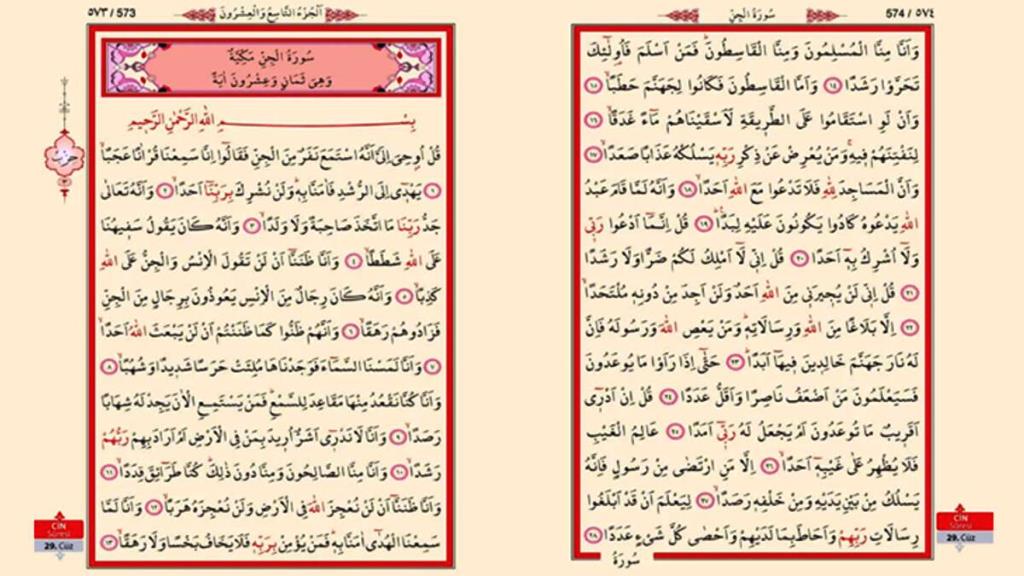 ٥٧٣ / 573
اَلْجُزْءُ التَّاسِعُ وَالْعِشْرُونَ
سُورَةُ الْجِنِّ مَكِّيَّةٌ
وَهِىَ ثَمَانٍ وَعِشْرُونَ اٰيَةً
بِسْمِ اللّٰهِ الرَّحْمٰنِ الرَّحٖيمِ
حزب
قُلْ اُو۫حِىَ اِلَىَّ اَنَّهُ اسْتَمَعَ نَفَرٌ مِنَ الْجِنِّ فَقَالُٓوا اِنَّا سَمِعْنَا قُرْاٰنًا عَجَبًاۙ
﴿١﴾ يَهْدٖٓى اِلَى الرُّشْدِ فَاٰمَنَّا بِهٖؕ وَلَنْ نُشْرِكَ بِرَبِّنَٓا اَحَدًاۙ ﴿٢﴾ وَاَنَّهُ تَعَالٰى
جَدُّ رَبِّنَا مَا اتَّخَذَ صَاحِبَةً وَلَا وَلَدًاۙ ﴿٣﴾ وَاَنَّهُ كَانَ يَقُولُ سَفٖيهُنَا
عَلَى اللّٰهِ شَطَطًاۙ ﴿٤﴾ وَاَنَّا ظَنَنَّٓا اَنْ لَنْ تَقُولَ الْاِنْسُ وَالْجِنُّ عَلَى اللّٰهِ
كَذِبًاۙ ﴿٥﴾ وَاَنَّهُ كَانَ رِجَالٌ مِنَ الْاِنْسِ يَعُوذُونَ بِرِجَالٍ مِنَ الْجِنِّ
فَزَادُوهُمْ رَهَقًاۙ ﴿٦﴾ وَاَنَّهُمْ ظَنُّوا كَمَا ظَنَنْتُمْ اَنْ لَنْ يَبْعَثَ اللّٰهُ اَحَدًاۙ
﴿٧﴾ وَاَنَّا لَمَسْنَا السَّمَٓاءَ فَوَجَدْنَاهَا مُلِئَتْ حَرَسًا شَدٖيدًا وَشُهُبًاۙ ﴿٨﴾
وَاَنَّا كُنَّا نَقْعُدُ مِنْهَا مَقَاعِدَ لِلسَّمْعِؕ فَمَنْ يَسْتَمِعِ الْاٰنَ يَجِدْ لَهُ شِهَابًا
رَصَدًاۙ ﴿٩﴾ وَاَنَّا لَا نَدْرٖٓى اَشَرٌّ اُرٖيدَ بِمَنْ فِى الْاَرْضِ اَمْ اَرَادَ بِهِمْ رَبُّهُمْ
رَشَدًاۙ ﴿١٠﴾ وَاَنَّا مِنَّا الصَّالِحُونَ وَمِنَّا دُونَ ذٰلِكَؕ كُنَّا طَرَٓائِقَ قِدَدًاۙ ﴿١١﴾
وَاَنَّا ظَنَنَّٓا اَنْ لَنْ نُعْجِزَ اللّٰهَ فِى الْاَرْضِ وَلَنْ نُعْجِزَهُ هَرَبًاۙ ﴿١٢﴾ وَاَنَّا لَمَّا
سَمِعْنَا الْهُدٰٓى اٰمَنَّا بِهٖؕ فَمَنْ يُؤْمِنْ بِرَبِّهٖ فَلَا يَخَافُ بَخْسًا وَلَا رَهَقًاۙ ﴿١٣﴾
CİN
Sûresi
29. Cüz
سُورَةُ الْجِنِّ
574 / ٥٧٤
وَاَنَّا مِنَّا الْمُسْلِمُونَ وَمِنَّا الْقَاسِطُونَؕ فَمَنْ اَسْلَمَ فَاُو۬لٰٓئِكَ
تَحَرَّوْا رَشَدًا ﴿١٤﴾ وَاَمَّا الْقَاسِطُونَ فَكَانُوا لِجَهَنَّمَ حَطَبًاۙ ﴿١٥﴾
وَاَنْ لَوِ اسْتَقَامُوا عَلَى الطَّرٖيقَةِ لَاَسْقَيْنَاهُمْ مَٓاءً غَدَقًاۙ ﴿١٦﴾
لِنَفْتِنَهُمْ فٖيهِؕ وَمَنْ يُعْرِضْ عَنْ ذِكْرِ رَبِّهٖ يَسْلُكْهُ عَذَابًا صَعَدًاۙ ﴿١٧﴾
وَاَنَّ الْمَسَاجِدَ لِلّٰهِ فَلَا تَدْعُوا مَعَ اللّٰهِ اَحَدًاۙ ﴿١٨﴾ وَاَنَّهُ لَمَّا قَامَ عَبْدُ
اللّٰهِ يَدْعُوهُ كَادُوا يَكُونُونَ عَلَيْهِ لِبَدًاؕ ﴿١٩﴾ قُلْ اِنَّمَٓا اَدْعُوا رَبّٖى
وَلَٓا اُشْرِكُ بِهٖٓ اَحَدًا ﴿٢٠﴾ قُلْ اِنّٖى لَٓا اَمْلِكُ لَكُمْ ضَرًّا وَلَا رَشَدًا
﴿٢١﴾ قُلْ اِنّٖى لَنْ يُجٖيرَنٖى مِنَ اللّٰهِ اَحَدٌ وَلَنْ اَجِدَ مِنْ دُونِهٖ مُلْتَحَدًاۙ
﴿٢٢﴾ اِلَّا بَلَاغًا مِنَ اللّٰهِ وَرِسَالَاتِهٖؕ وَمَنْ يَعْصِ اللّٰهَ وَرَسُولَهُ فَاِنَّ
لَهُ نَارَ جَهَنَّمَ خَالِدٖينَ فٖيهَٓا اَبَدًاؕ ﴿٢٣﴾ حَتّٰٓى اِذَا رَاَوْا مَا يُوعَدُونَ
فَسَيَعْلَمُونَ مَنْ اَضْعَفُ نَاصِرًا وَاَقَلُّ عَدَدًا ﴿٢٤﴾ قُلْ اِنْ اَدْرٖٓى
اَقَرٖيبٌ مَا تُوعَدُونَ اَمْ يَجْعَلُ لَهُ رَبّٖٓى اَمَدًا ﴿٢٥﴾ عَالِمُ الْغَيْبِ
فَلَا يُظْهِرُ عَلٰى غَيْبِهٖٓ اَحَدًاۙ ﴿٢٦﴾ اِلَّا مَنِ ارْتَضٰى مِنْ رَسُولٍ فَاِنَّهُ
يَسْلُكُ مِنْ بَيْنِ يَدَيْهِ وَمِنْ خَلْفِهٖ رَصَدًاۙ ﴿٢٧﴾ لِيَعْلَمَ اَنْ قَدْ اَبْلَغُوا
رِسَالَاتِ رَبِّهِمْ وَاَحَاطَ بِمَا لَدَيْهِمْ وَاَحْصٰى كُلَّ شَیْءٍ عَدَدًا ﴿٢٨﴾
سُورَةُ
CİN
Sûresi
29. Cüz